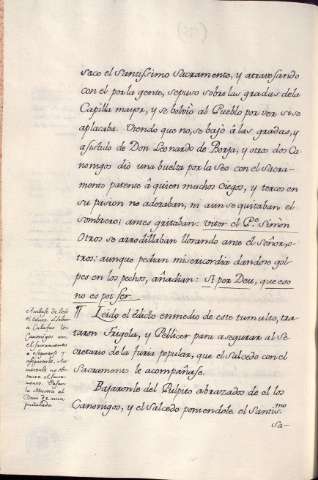 saco el Santissimo Sacramento, y atravesando
con el por la gente, se puso sobre las gradas de la
Capilla mayor, y se bolvio al Pueblo por ver si se
aplacaba. Viendo que no, se bajó á las gradas, y
asistido de Don Leonardo de Borja, y otro dos Ca-
nonigos dió una buelta por la Seo con el Sacra-
mento patente á quien muchos ciegos, y tercos en
su pasion no adoraban, ni aun se quitaban el
sombrero; antes gritaban: vitor el Pe. Simon
Otros se arrodillaban llorando ante el Señor, o-
tros: aunque pedian misericordia dandose gol-
pes en los pechos, añadian: Si por Deu, que eso
no es pot fer.
¶ Leido el Edicto en medio de este tumulto, tra-
taron Frigola, y Pellicer para asegurar al Se-
cretario de la furia popular, que el Salcedo con el
Sacramento le acompañase.
Bajaronle del Pulpito abrazados de el los
Canonigos, y el Salcedo poniendole el Santis.mo
Sa-